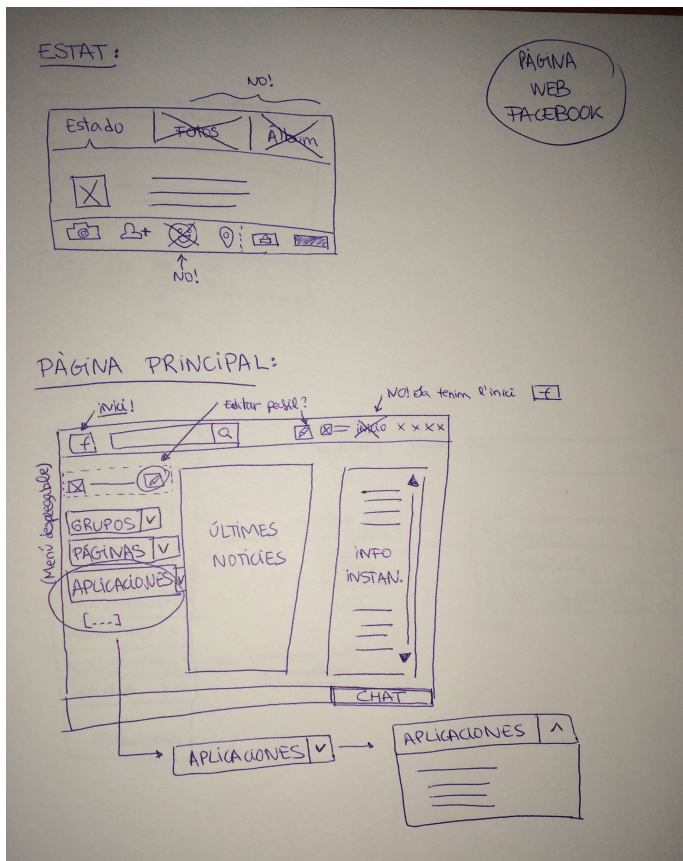 ESTAT:
PÀGINA
WEB
FACEBOOK
NO!
Estado
Fotos
Álbum
NO!
PÀGINA PRINCIPAL:
inici!
Editar perfil?
NO! Ja tenim l'inici f
f
inicio x x x x
(Menú desplegable)
GRUPOS v
PÁGINAS v
APLICACIONES v
[...]
ÚLTIMES
NOTÍCIES
INFO
INSTAN.
CHAT
APLICACIONES v
APLICACIONES ^